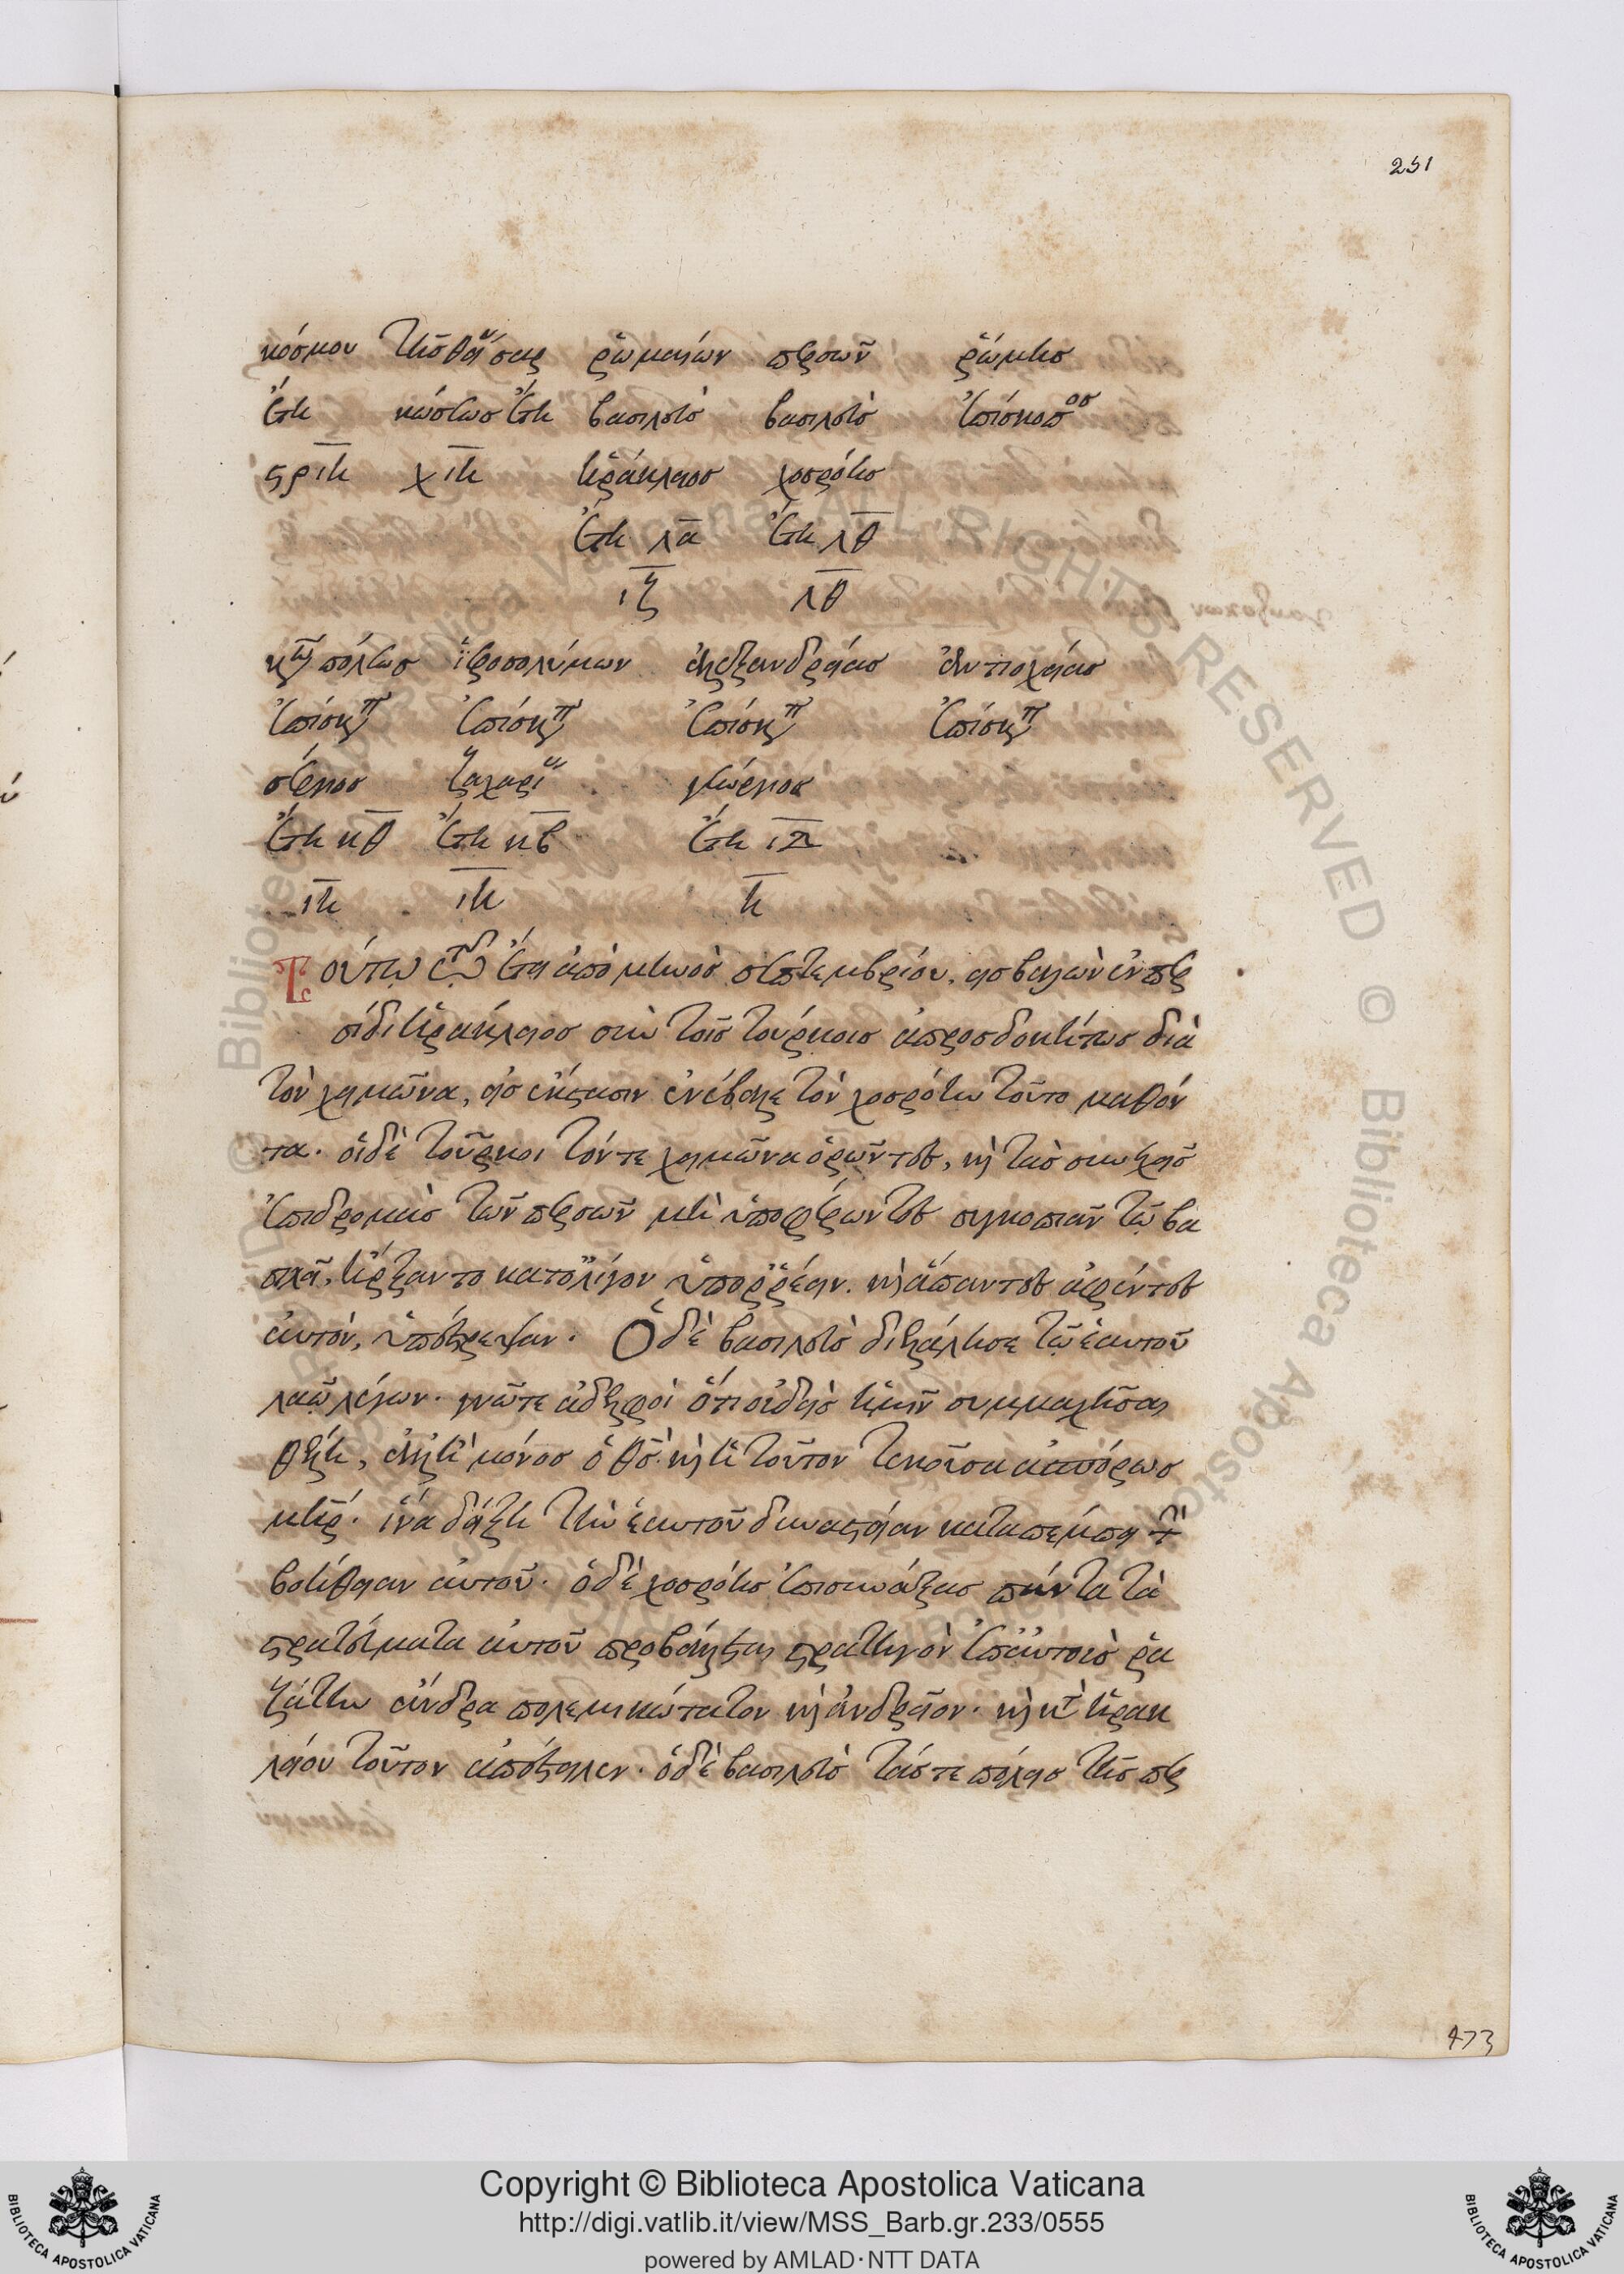 251
κόσμου τῆς θεί σαρ ῥωμαίων περσῶν ῥώμης
ἔτη κώσεως ἔτη βασιλεὺς βασιλεὺς ἐπίσκοπος
ϛριη χιη ἡράκλειος χοσρόης
ἔτη λα ἔτη λθ
ιζ λθ
κων πόλεως ἱεροσολύμων ἀλεξανδρείας ἀντιοχείας
ἐπίσκοπ ἐπίσκοπ ἐπίσκοπ ἐπίσκοπ
σέργιος ζαχαρί γεώργιος
ἔτη κθ ἔτη κβ ἔτη ιδ
ιη ιη η
Τούτῳ τῷ ἔτει ἀπὸ μηνὸς σεπτεμβρίου, εἰσβαλὼν ἐν περ
σίδι ἡράκλειος σὺν τοῖς τούρκοις ἀπροσδοκήτως διὰ
τὸν χειμῶνα, εἰς ἔκστασιν ἐνέβαλε τὸν χοσρόην τοῦτο μαθόν
τα. οἱ δὲ τοῦρκοι τόν τε χειμῶνα ὁρῶντες, καὶ τὰς συνεχεῖς
ἐπιδρομὰς τῶν περσῶν μὴ ὑποφέρωντες συγκοπιᾶν τῷ βα
σιλεῖ, ἤρξαντο κατ' ὀλίγον ὑπορρέειν. καὶ ἅπαντες ἀφέντες
αὐτὸν, ὑπέστρεψαν. Ὁ δὲ βασιλεὺς διελάλησε τῷ ἑαυτοῦ
λαῷ λέγων. γνῶτε ἀδελφοὶ ὅτι οὐδεὶς ἡμῖν συμμαχῆσαι
θέλει, ἀλλ' ἢ μόνος ὁ θς. καὶ ἡ τοῦτον τεκοῦσα ἀσπόρως
μηρ. ἵνα δείξῃ τὴν ἑαυτοῦ δυναστείαν καταπέμπει τὴν
βοήθειαν αὐτοῦ. ὁ δὲ χοσρόης ἐπισυνάξας πάντα τὰ
στρατεύματα αὐτοῦ προβάλλεται στρατηγὸν ἐπ' αὐτοὺς ῥα
ζάτην ἄνδρα πολεμικώτατον καὶ ἀνδρεῖον. καὶ κατὰ ἡρακ
λείου τοῦτον ἀπέστειλεν. ὁ δὲ βασιλεὺς τάς τε πόλεις τῆς περ
473
Copyright © Biblioteca Apostolica Vaticana
http://digi.vatlib.it/view/MSS_Barb.gr.233/0555
powered by AMLAD·NTT DATA
BIBLIOTECA APOSTOLICA VATICANA
BIBLIOTECA APOSTOLICA VATICANA